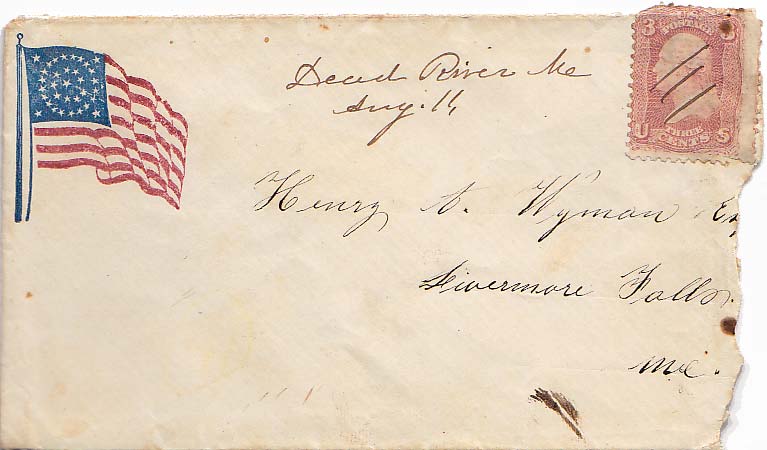 Dead River Me
Aug. 11
3 U.S. 3
POSTAGE
U THREE S
CENTS
Henry A. Wyman Es
Livermore Falls.
Me.